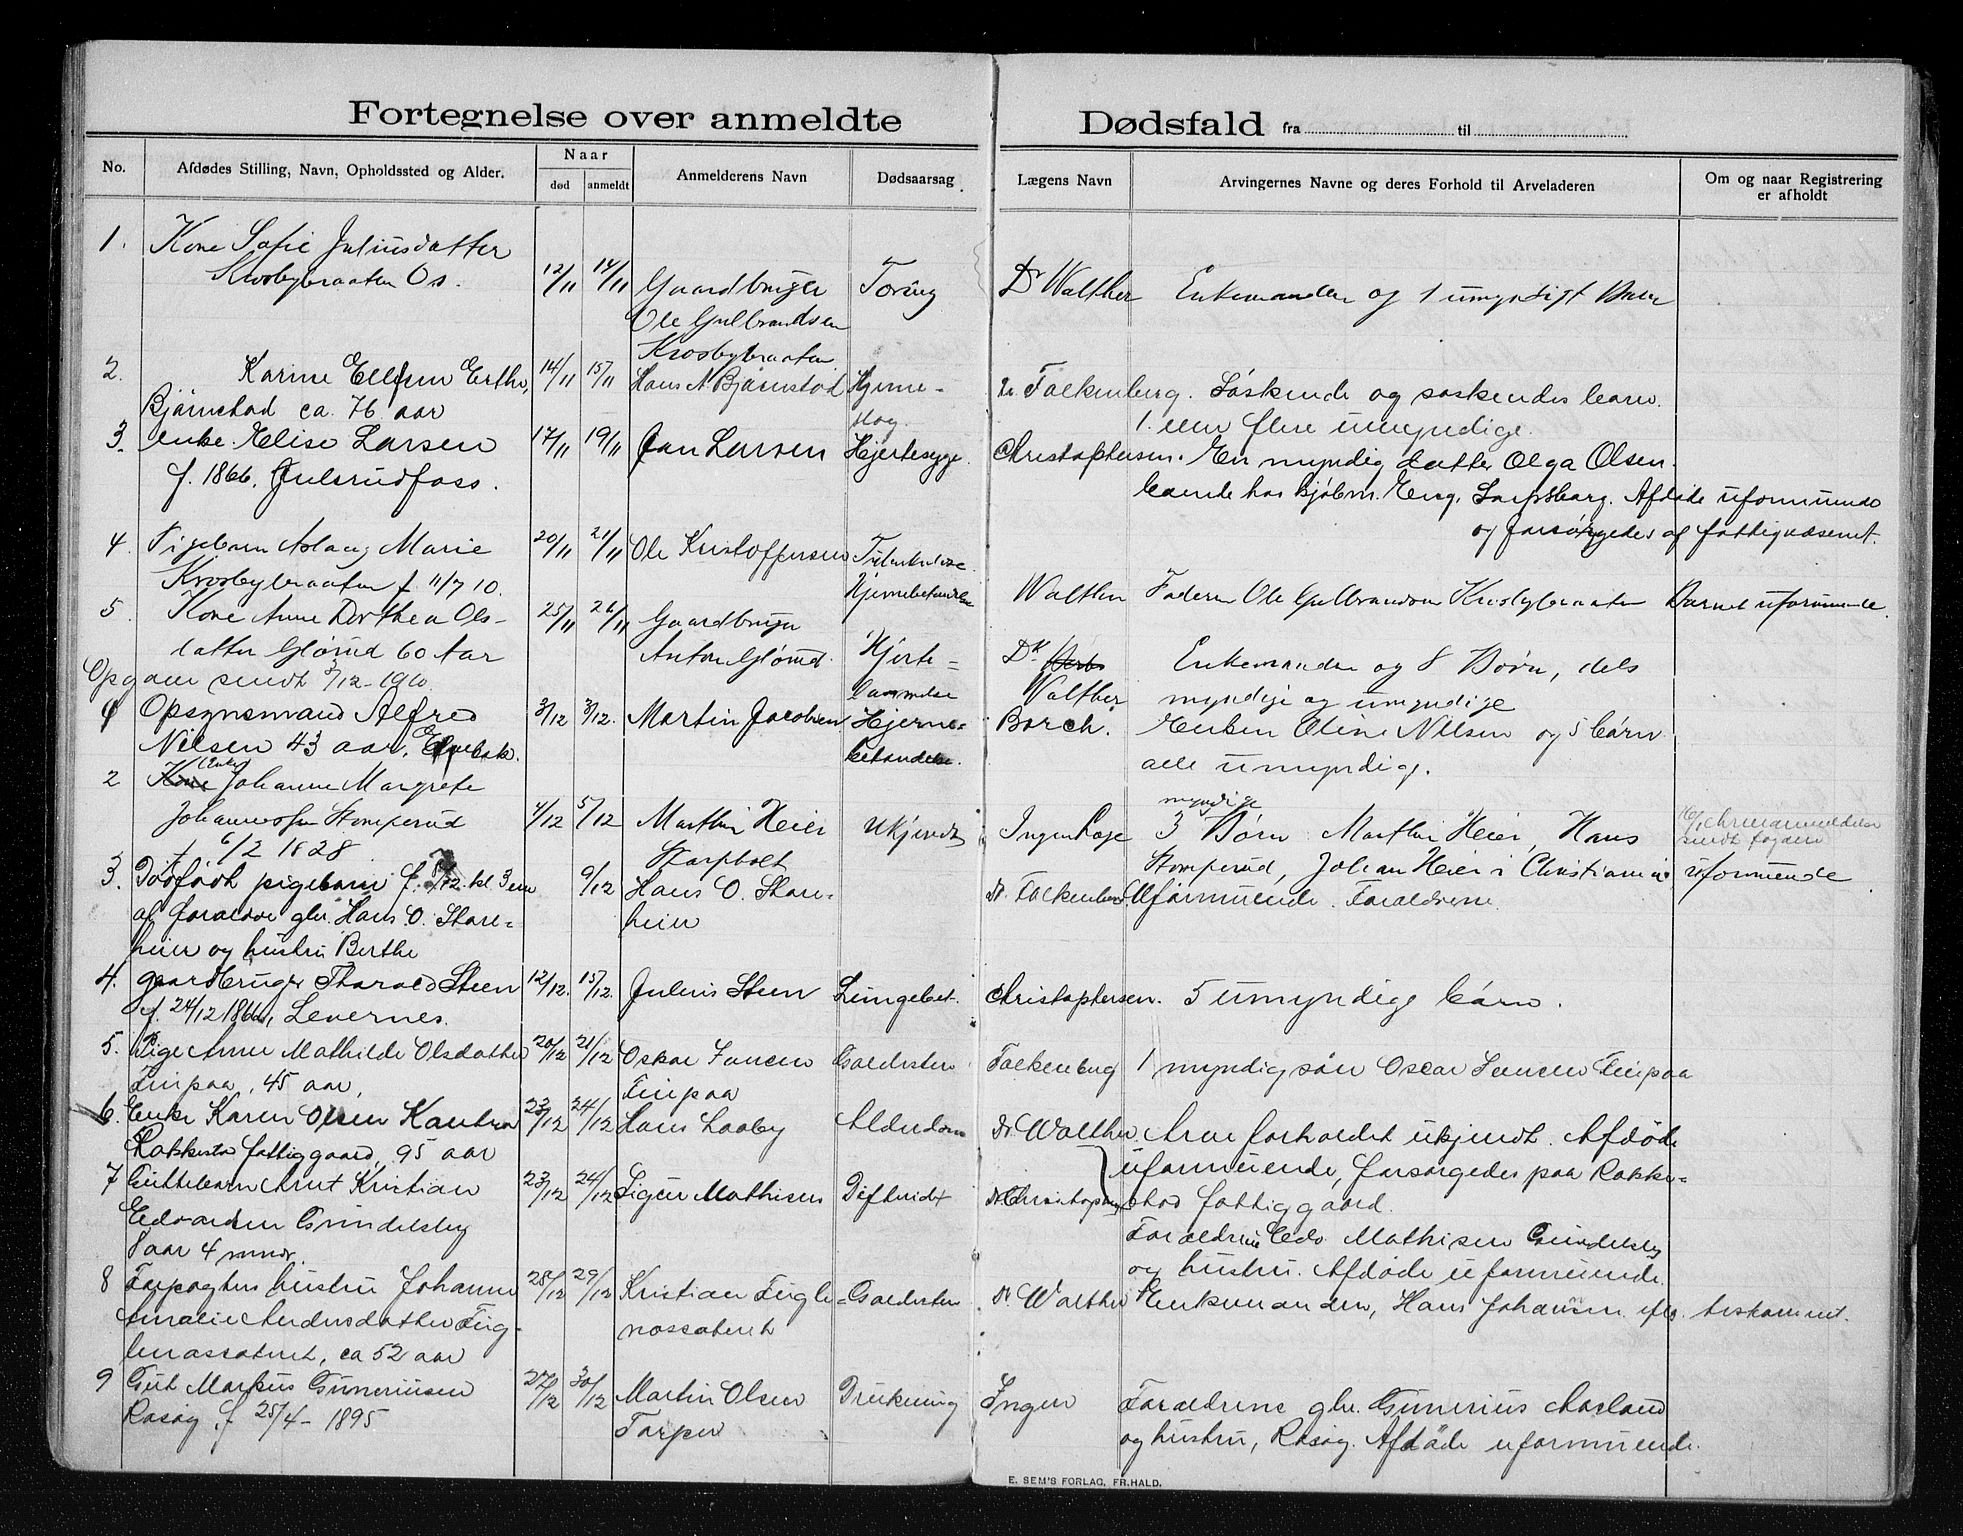 Fortegnelse over anmeldte Dødsfald fra til
No.
Afdødes Stilling, Navn, Opholdssted og Alder.
Naar
død anmeldt
Anmelderens Navn
Dødsaarsag
Lægens Navn
Arvingernes Navne og deres Forhold til Arveladeren
Om og naar Registrering
er afholdt
1. Kone Sofie Juliusdatter
Krosbybraaten Os.
12/11 14/11
Gaardbruger
Ole Gulbrandsen
Krosbybraaten
Tæring
Dr Walther
Enkemanden og 1 umyndigt Barn
2. Karine Ellefsen Erthe,
Bjørnstad ca. 76 aar
14/11 15/11
Hans A Bjørnstad
Hjerne-
slag.
Dr. Falkenberg.
Søskende og søskendes barn.
1 eller flere umyndige.
3. enke Elise Larsen
f. 1866, Julsrudfoss.
17/11 19/11
Jan Larsen
Hjertesyge.
Christophersen.
En myndig datter Olga Olsen.
Eng, Sarpsborg. Afdøde uformuende
og forsørgedes af fattigvæsenet.
4. Pigebarn Aslaug Marie
Krosbybraaten f. 11/7 10.
20/11 21/11
Ole Kristoffersen
Tuberkuløse
Hjernebetændelse
Walther
Faderen Ole Gulbrandsen Krosbybraaten
Barnet uformuende.
5. Kone Anne Dorthea Ols-
datter Glørud 60 Aar
25/11 26/11
Gaardbruger
Anton Glørud.
Hjerte-
lammelse
Dr
Walther
Enkemanden og 8 Børn, dels
myndige og umyndige
Opgave sendt 3/12-1910.
1 Opsynsmand Alfred
Nilsen 43 aar,
3/12 3/12.
Martin Jacobsen
Hjerne-
betændelse.
Borch.
Enken Oline Nilsen og 5 børn
alle umyndig.
2 Kone (Enke) Johanne Margrete
Johannessen Stomperud
f 6/2 1828.
4/12 5/12
Marthin Heier
Skarpholt
Ukjendt
Ingen Læge
myndige
3 Børn Marthin Heier, Hans
Stomperud, Johan Heier i Christiania
sendt fogden
uformuende
3. Dødfødt pigebarn f. 8/12 kl. 3 em
af forældre gbr. Hans O. Skare-
heier og hustru Berthe
9/12
Hans O. Skare-
heier
Dr. Falkenberg
Uformuende. Forældrene.
4. gaardbruger Thorald Steen
f. 24/12 1866, Levernes.
12/12. 15/12.
Julius Steen
Lungebet.
Christophersen.
5 umyndige børn.
5. Pige Anne Mathilde Olsdatter
Finpaa, 45 aar,
20/12 21/12
Oskar Jensen
Finpaa
Galdesten
Falkenberg
1 myndig søn Oscar Jensen Finpaa
6. Enke Karen Olsen
Rakkestad fattiggaard, 95 aar
23/12 24/12
Hans Laaby
Alderdom
Dr. Walther.
Arveforholdet ukjendt. Afdøde
uformuende, forsørgedes paa Rakke-
stad fattiggaard.
7 Guttebarn Arnt Kristian
Edvardsen Grindelsby
8 aar 4 mndr.
23/12 24/12
Sigur Mathisen
Difteridt
Dr. Christophersen
Forældrene Edv. Mathisen Grindelsby
og hustru. Afdøde uformuende.
8 Forpagters hustru Johanne
Amalie Andersdatter Fug-
lenessæteret, ca 52 aar
28/12 29/12
Kristian Fugle-
næssæteret
Galdesten
Dr. Walther
Enkemanden, Hans Johansen
9 Gut Markus Gunerius͏en
Rosøg f 25/4-1895
27/12 30/12
Martin Olsen
Torper
Drukning
Ingen
Forældrene gbr. Gunerius Aasland
og hustru, Rosøg. Afdøde uformuende.
E. SEM'S FORLAG, FR.HALD.